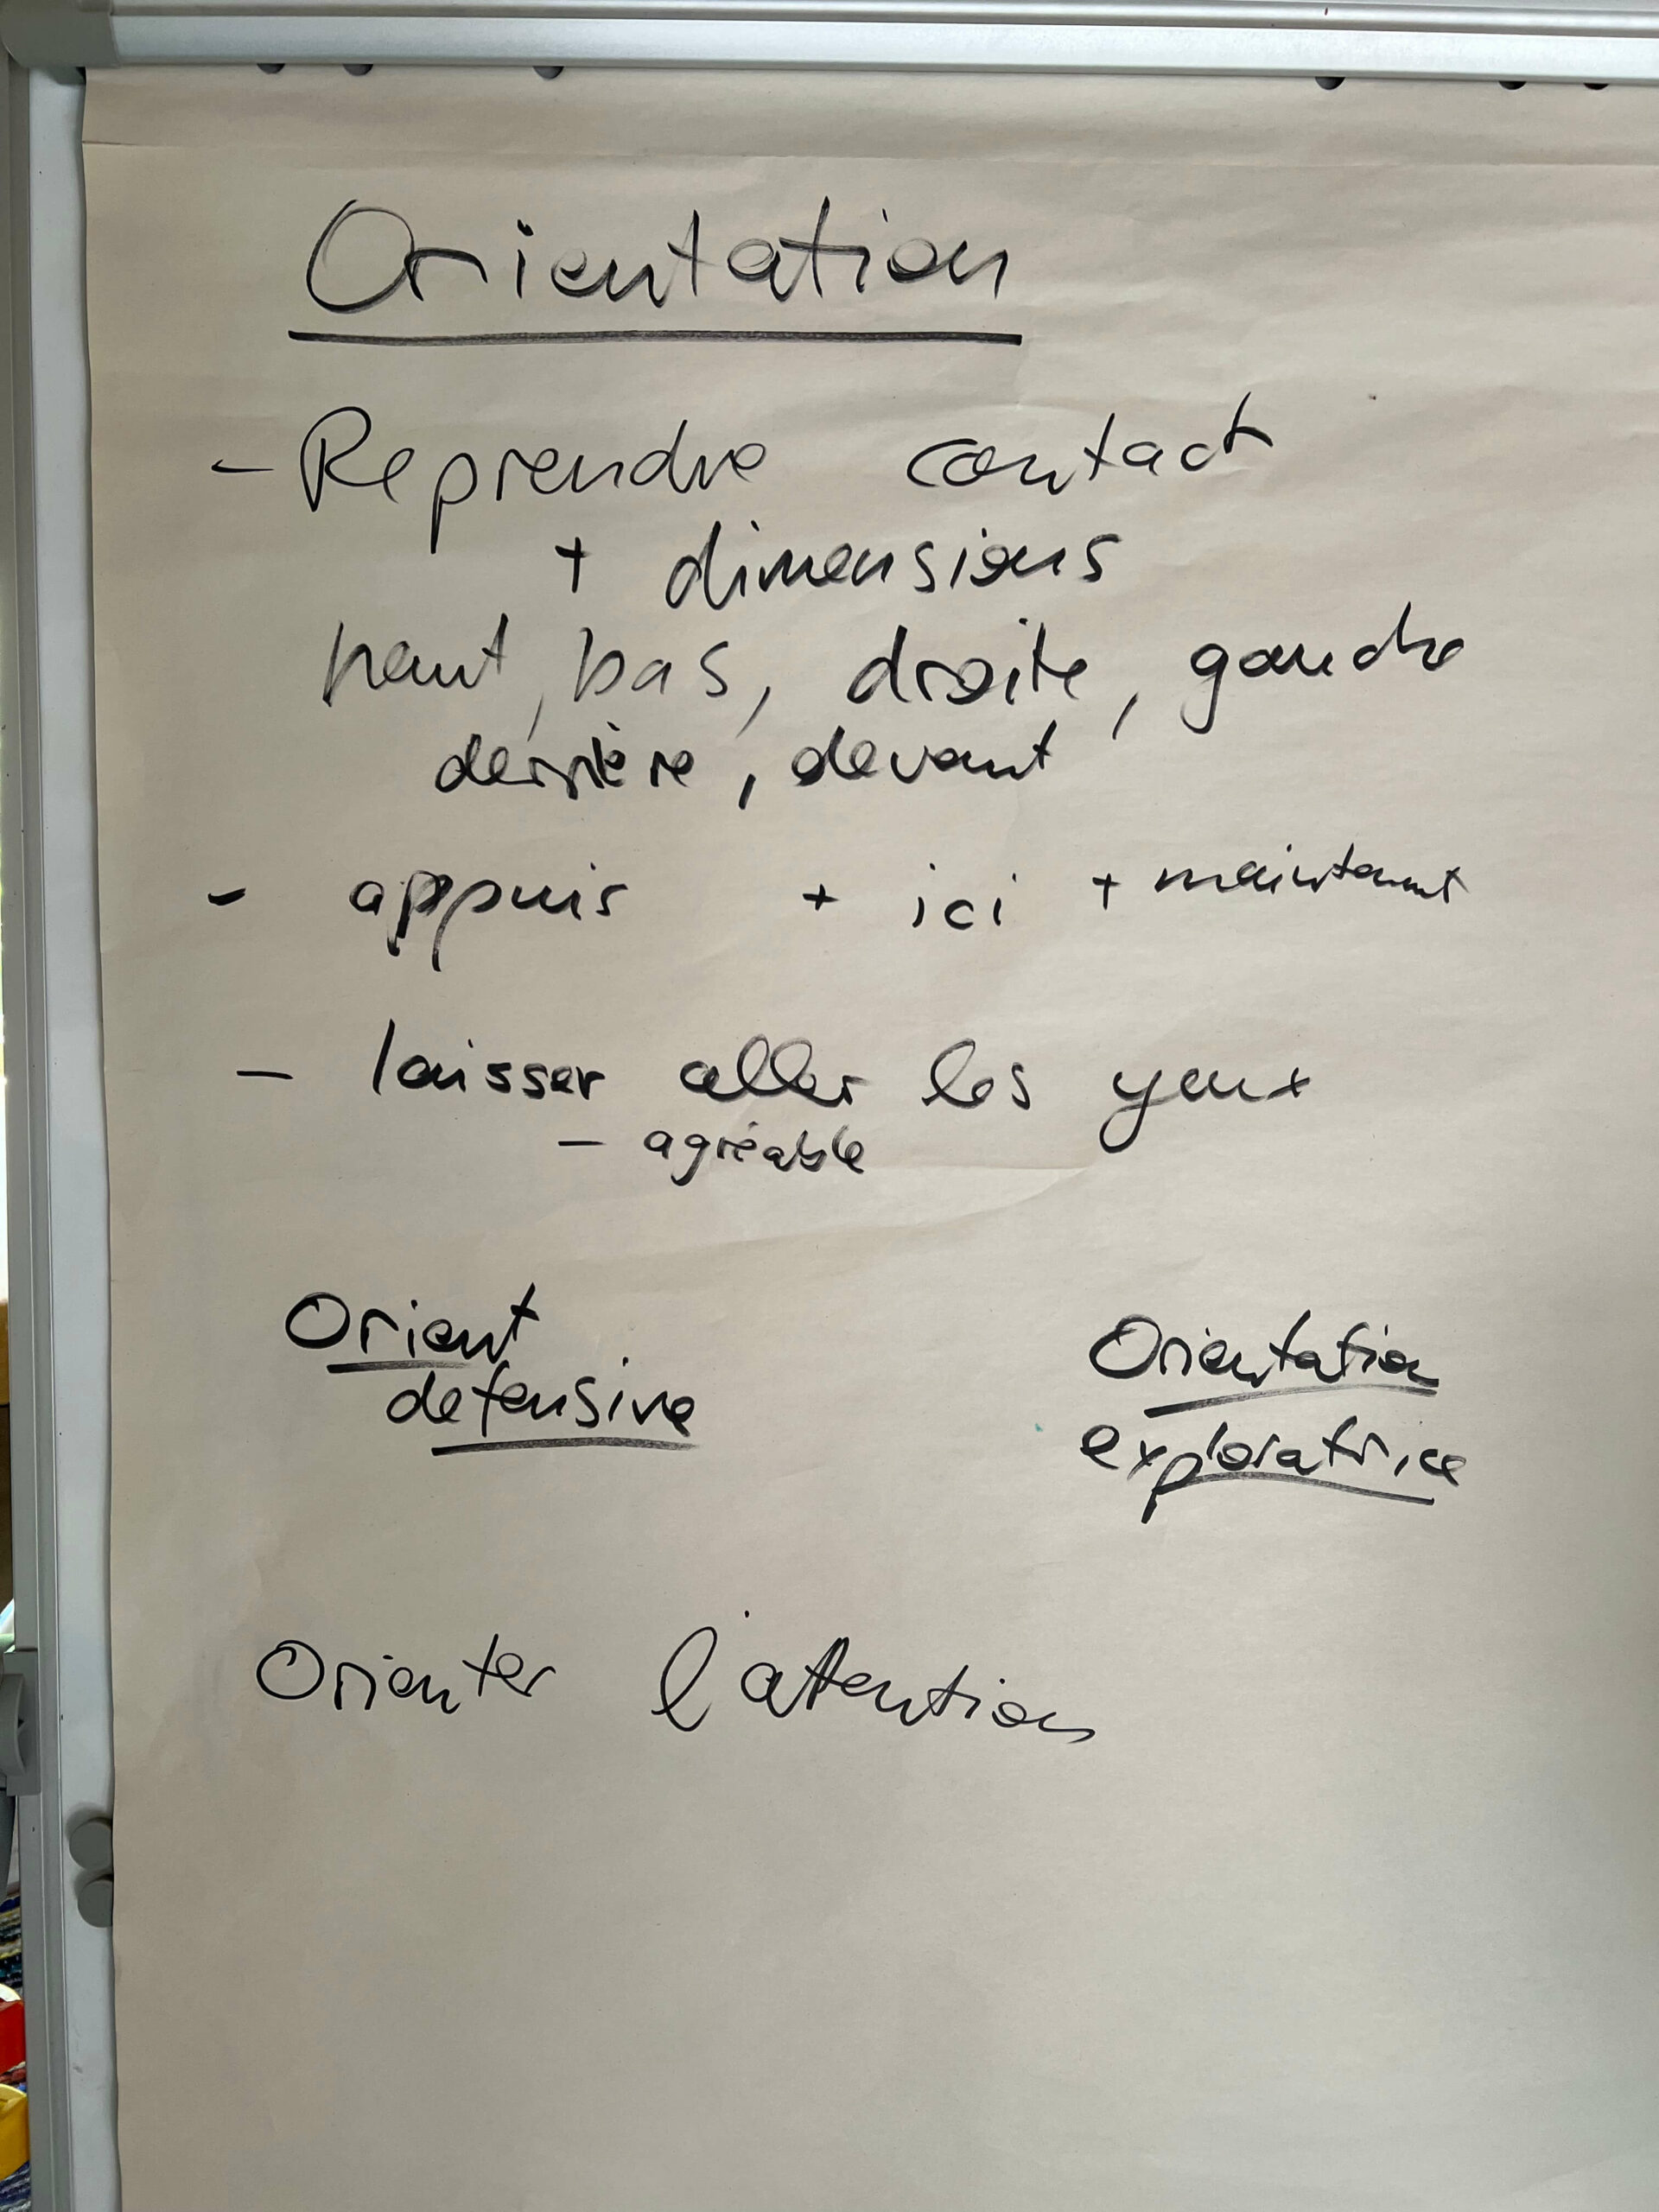 Orientation
- Reprendre contact
+ dimensions
haut, bas, droite, gauche
derrière, devant
- appuis + ici + maintenant
- laisser aller les yeux
- agréable
Orient
defensive
Orientation
exploratrice
Orienter l'attention